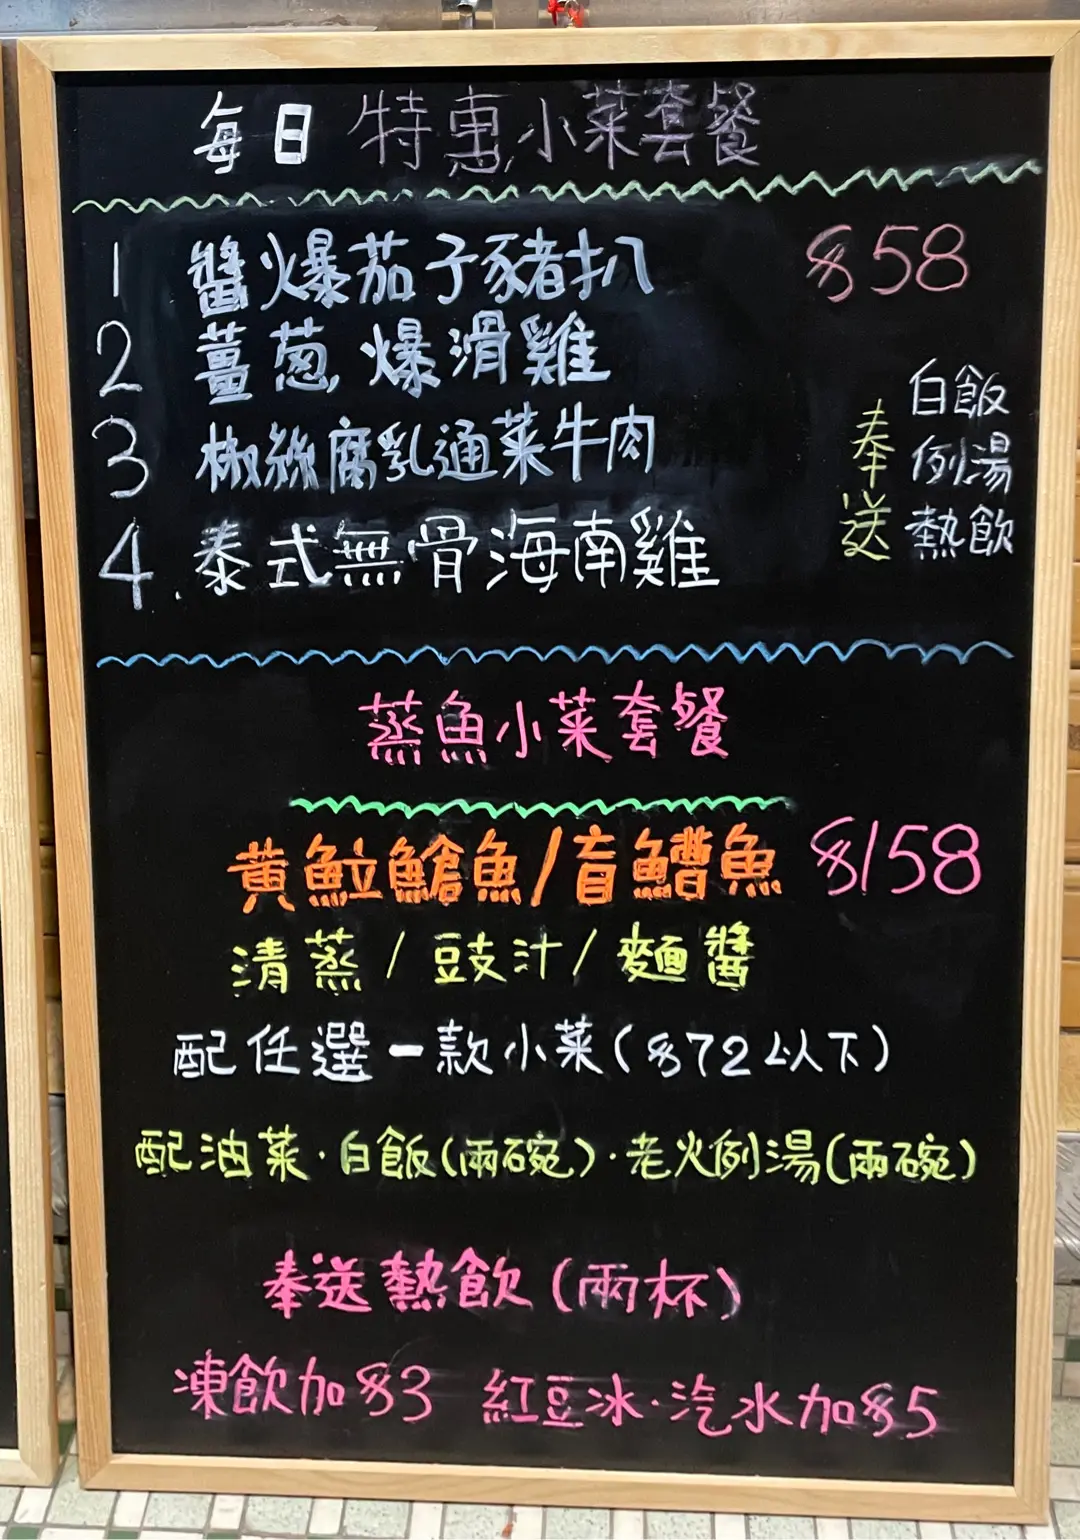 每日特惠小菜套餐
1 醬爆茄子豬扒 $58
2 薑葱爆滑雞
3 椒絲腐乳通菜牛肉
4. 泰式無骨海南雞
奉送
白飯
例湯
熱飲
蒸魚小菜套餐
黃魚立鱠魚/盲鰽魚 $158
清蒸/豉汁/麵醬
配任選一款小菜($72以下)
配油菜·白飯(兩碗)·老火例湯(兩碗)
奉送熱飲(兩杯)
凍飲加$3 紅豆冰·汽水加$5